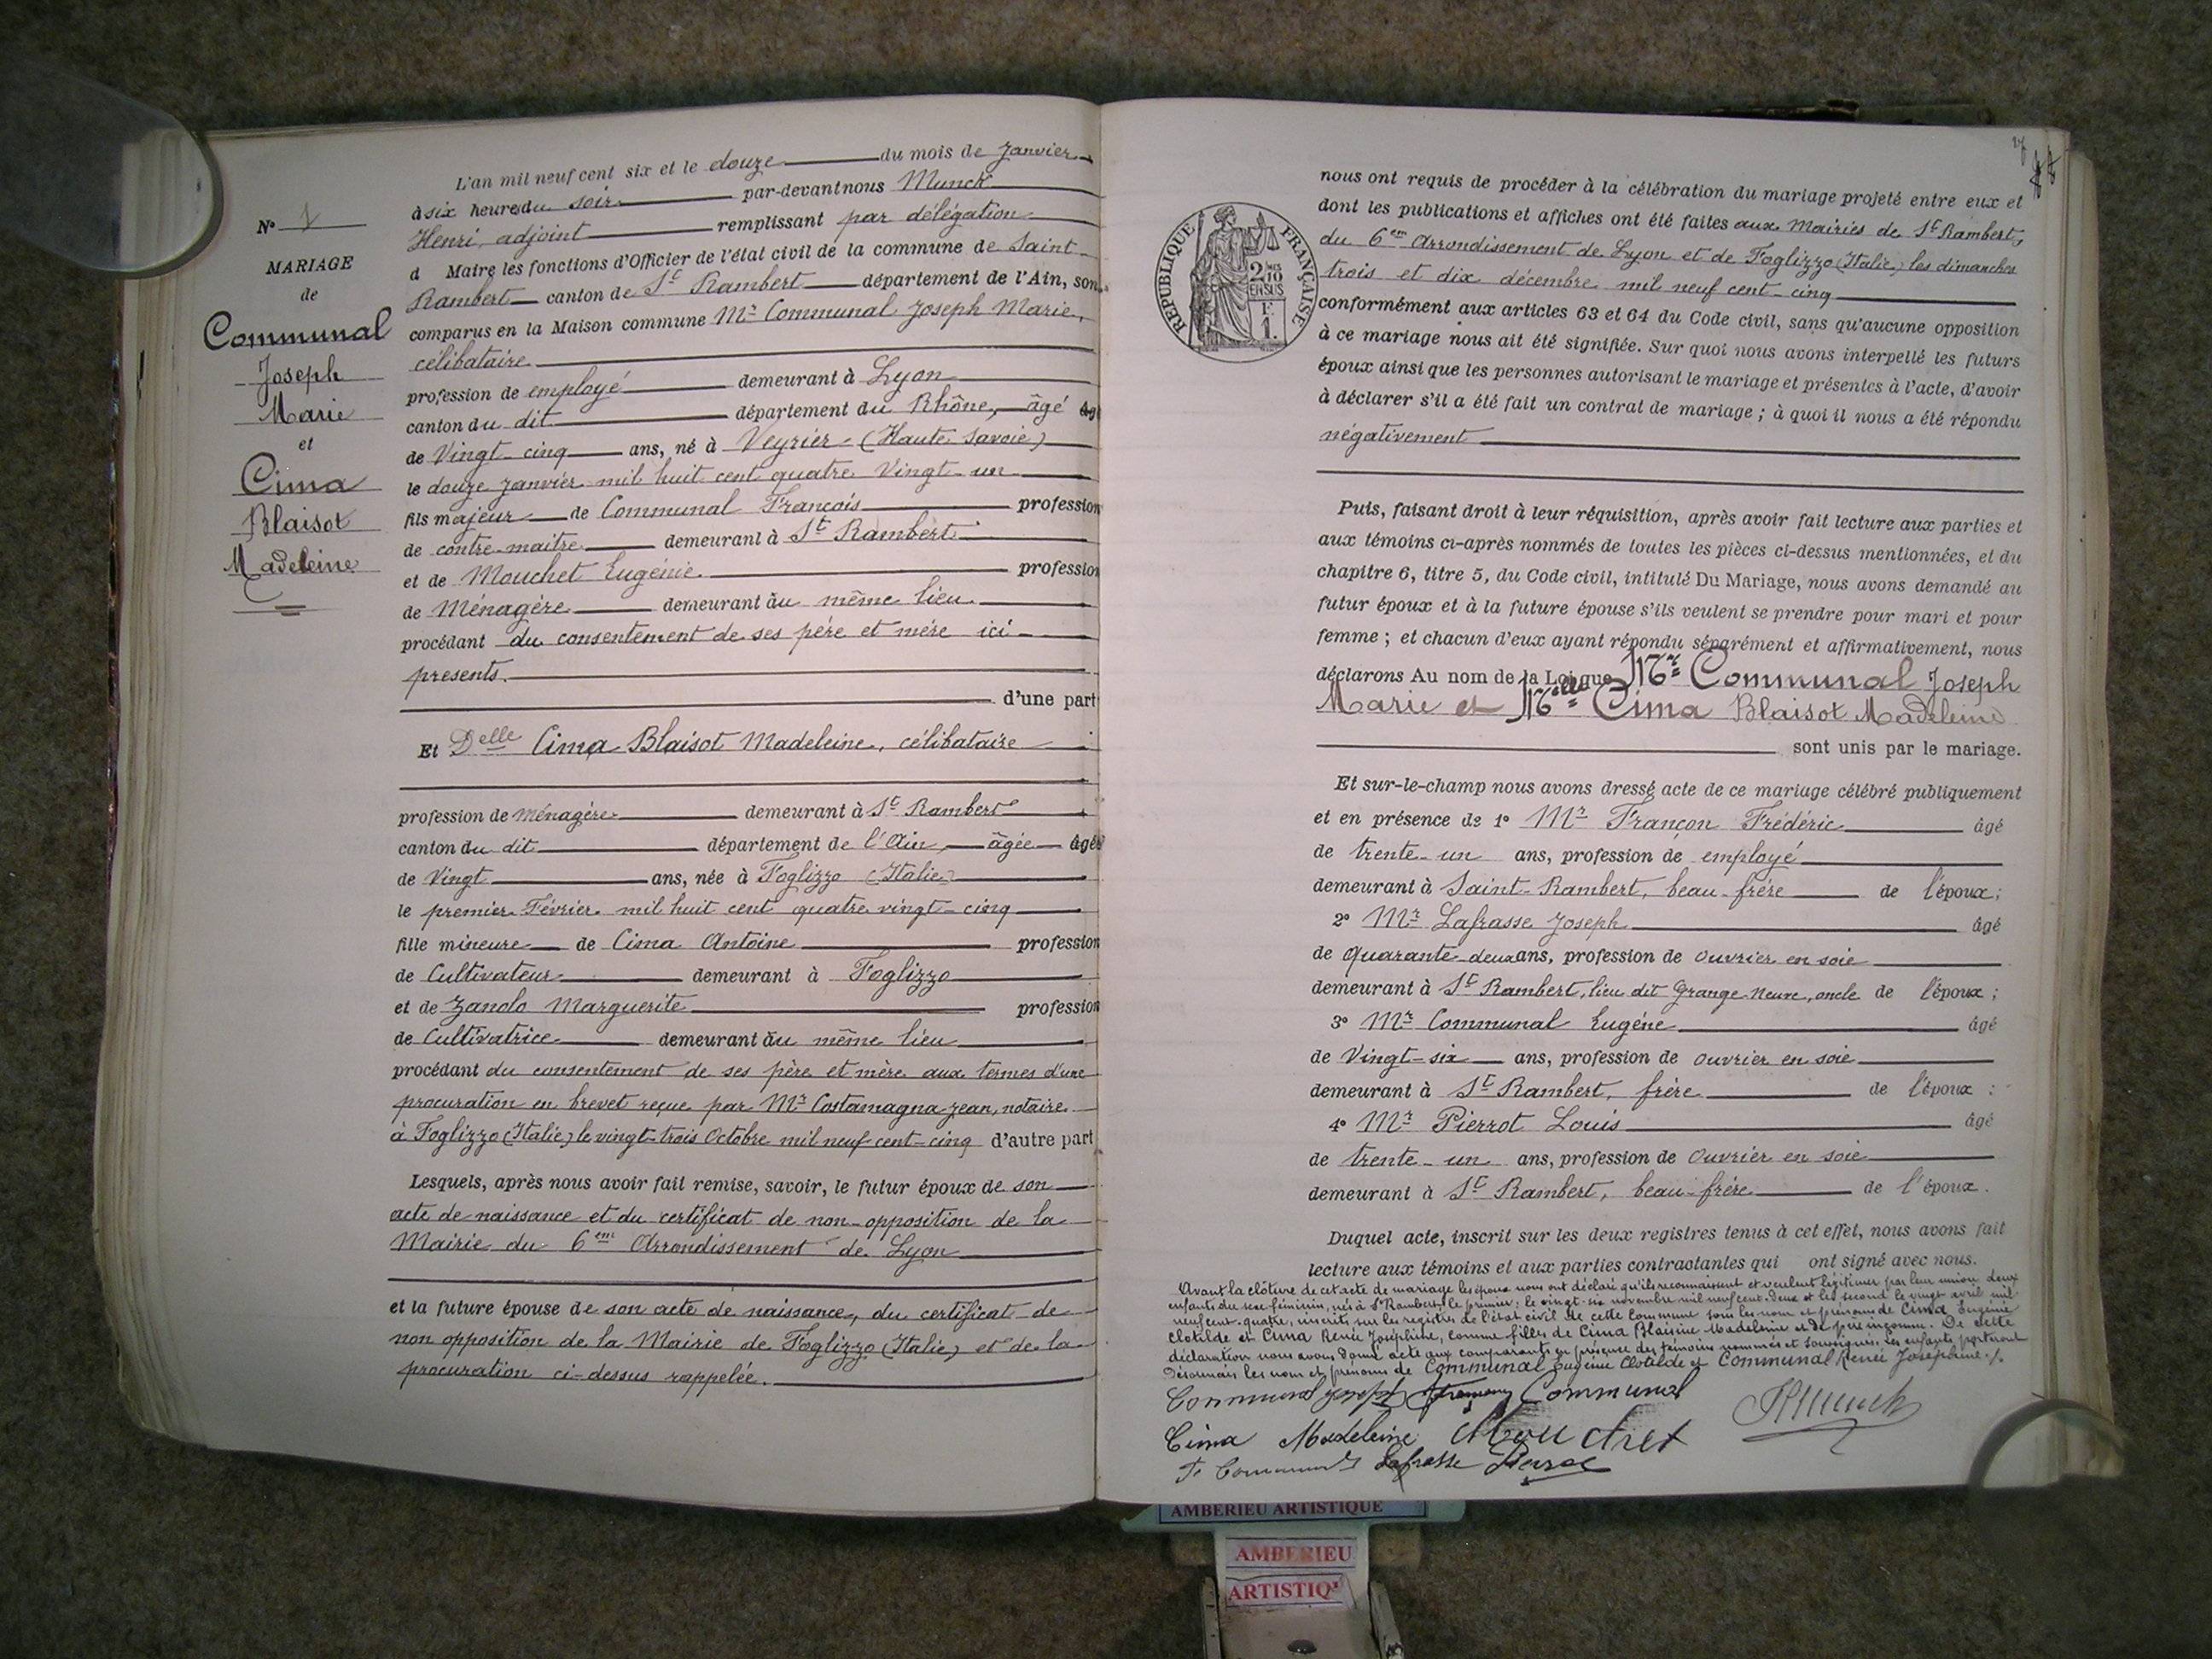 N° 1
MARIAGE
de
Communal
Joseph
Marie
et
Cima
Blaisot
Madeleine
L'an mil neuf cent six et le douze du mois de Janvier
à six heures du soir par-devant nous Munck
Henri, adjoint remplissant par délégation
d Maire les fonctions d'Officier de l'état civil de la commune de Saint-
Rambert canton de St Rambert département de l'Ain, son
comparus en la Maison commune Mr Communal Joseph Marie,
célibataire
profession de employé demeurant à Lyon
canton du dit département du Rhône, âgé âgé
de Vingt-cinq ans, né à Veyrier (Haute Savoie)
le douze janvier mil huit cent quatre Vingt-un
fils majeur de Communal François profession
de contre-maitre demeurant à St Rambert
et de Mouchet Eugénie profession
de Ménagère demeurant au même lieu
procédant du consentement de ses père et mère ici
presents.
d'une part
Et Delle Cima Blaisot Madeleine, célibataire
profession de Ménagère demeurant à St Rambert
canton du dit département de l'Ain, âgée âgé
de Vingt ans, née à Foglizzo (Italie)
le premier Février mil huit cent quatre vingt-cinq
fille mineure de Cima Antoine profession
de Cultivateur demeurant à Foglizzo
et de Zanolo Marguerite profession
de Cultivatrice demeurant au même lieu
procédant du consentement de ses père et mère aux termes d'une
procuration en brevet reçue par Mr Costamagna Jean, notaire
à Foglizzo (Italie) le vingt-trois Octobre mil neuf cent-cinq d'autre part
Lesquels, après nous avoir fait remise, savoir, le futur époux de son
acte de naissance et du certificat de non-opposition de la
Mairie du 6em Arrondissement de Lyon
et la future épouse de son acte de naissance, du certificat de
non opposition de la Mairie de Foglizzo (Italie) et de la
procuration ci-dessus rappelée.
RÉPUBLIQUE FRANÇAISE
2 10MES
EN SUS
1F
1.
nous ont requis de procéder à la célébration du mariage projeté entre eux et
dont les publications et affiches ont été faites aux Mairies de St Rambert,
du 6em Arrondissement de Lyon et de Foglizzo (Italie) les dimanches
trois et dix décembre mil neuf cent-cinq
conformément aux articles 63 et 64 du Code civil, sans qu'aucune opposition
à ce mariage nous ait été signifiée. Sur quoi nous avons interpellé les futurs
époux ainsi que les personnes autorisant le mariage et présentes à l'acte, d'avoir
à déclarer s'il a été fait un contrat de mariage ; à quoi il nous a été répondu
négativement
Puis, faisant droit à leur réquisition, après avoir fait lecture aux parties et
aux témoins ci-après nommés de toutes les pièces ci-dessus mentionnées, et du
chapitre 6, titre 5, du Code civil, intitulé Du Mariage, nous avons demandé au
futur époux et à la future épouse s'ils veulent se prendre pour mari et pour
femme ; et chacun d'eux ayant répondu séparément et affirmativement, nous
déclarons Au nom de la Loi que Mr Communal Joseph
Marie et Melle Cima Blaisot Madeleine
sont unis par le mariage.
Et sur-le-champ nous avons dressé acte de ce mariage célébré publiquement
et en présence de 1° Mr Françon Frédéric âgé
de trente-un ans, profession de employé
demeurant à Saint-Rambert, beau-frère de l'époux ;
2° Mr Lafrasse Joseph âgé
de quarante-deux ans, profession de ouvrier en soie
demeurant à St Rambert, lieu dit Grange-Neuve, oncle de l'époux ;
3° Mr Communal Eugène âgé
de Vingt-six ans, profession de ouvrier en soie
demeurant à St Rambert, frère de l'époux :
4° Mr Pierrot Louis âgé
de trente-un ans, profession de Ouvrier en soie
demeurant à St Rambert, beau-frère de l'époux.
Duquel acte, inscrit sur les deux registres tenus à cet effet, nous avons fait
lecture aux témoins et aux parties contractantes qui ont signé avec nous.
Avant la clôture de cet acte de mariage les époux nous ont déclaré qu'ils reconnaissent et veulent légitimer par leur union deux
enfants du sexe féminin, nés à St Rambert, le premier ; le vingt-six novembre mil neuf cent-deux et les second le vingt avril mil
neuf cent-quatre, inscrits sur les registres de l'état civil de cette Commune sous les nom et prénoms de Cima Eugénie
Clotilde et Cima Renée Joséphine, comme filles de Cima Blaisine Madeleine et de père inconnu. De cette
déclaration nous avons donné acte aux comparants en présence des témoins nommés et soussignés. Les enfants porteront
Désormais les nom et prénoms de Communal Eugénie Clotilde et Communal Renée Joséphine ./.
Communal Joseph Françon Communal
Cima Madeleine Mouchet HMunck
Communal Lafrasse Pierrot
AMBERIEU ARTISTIQUE
AMBERIEU
ARTISTIQ